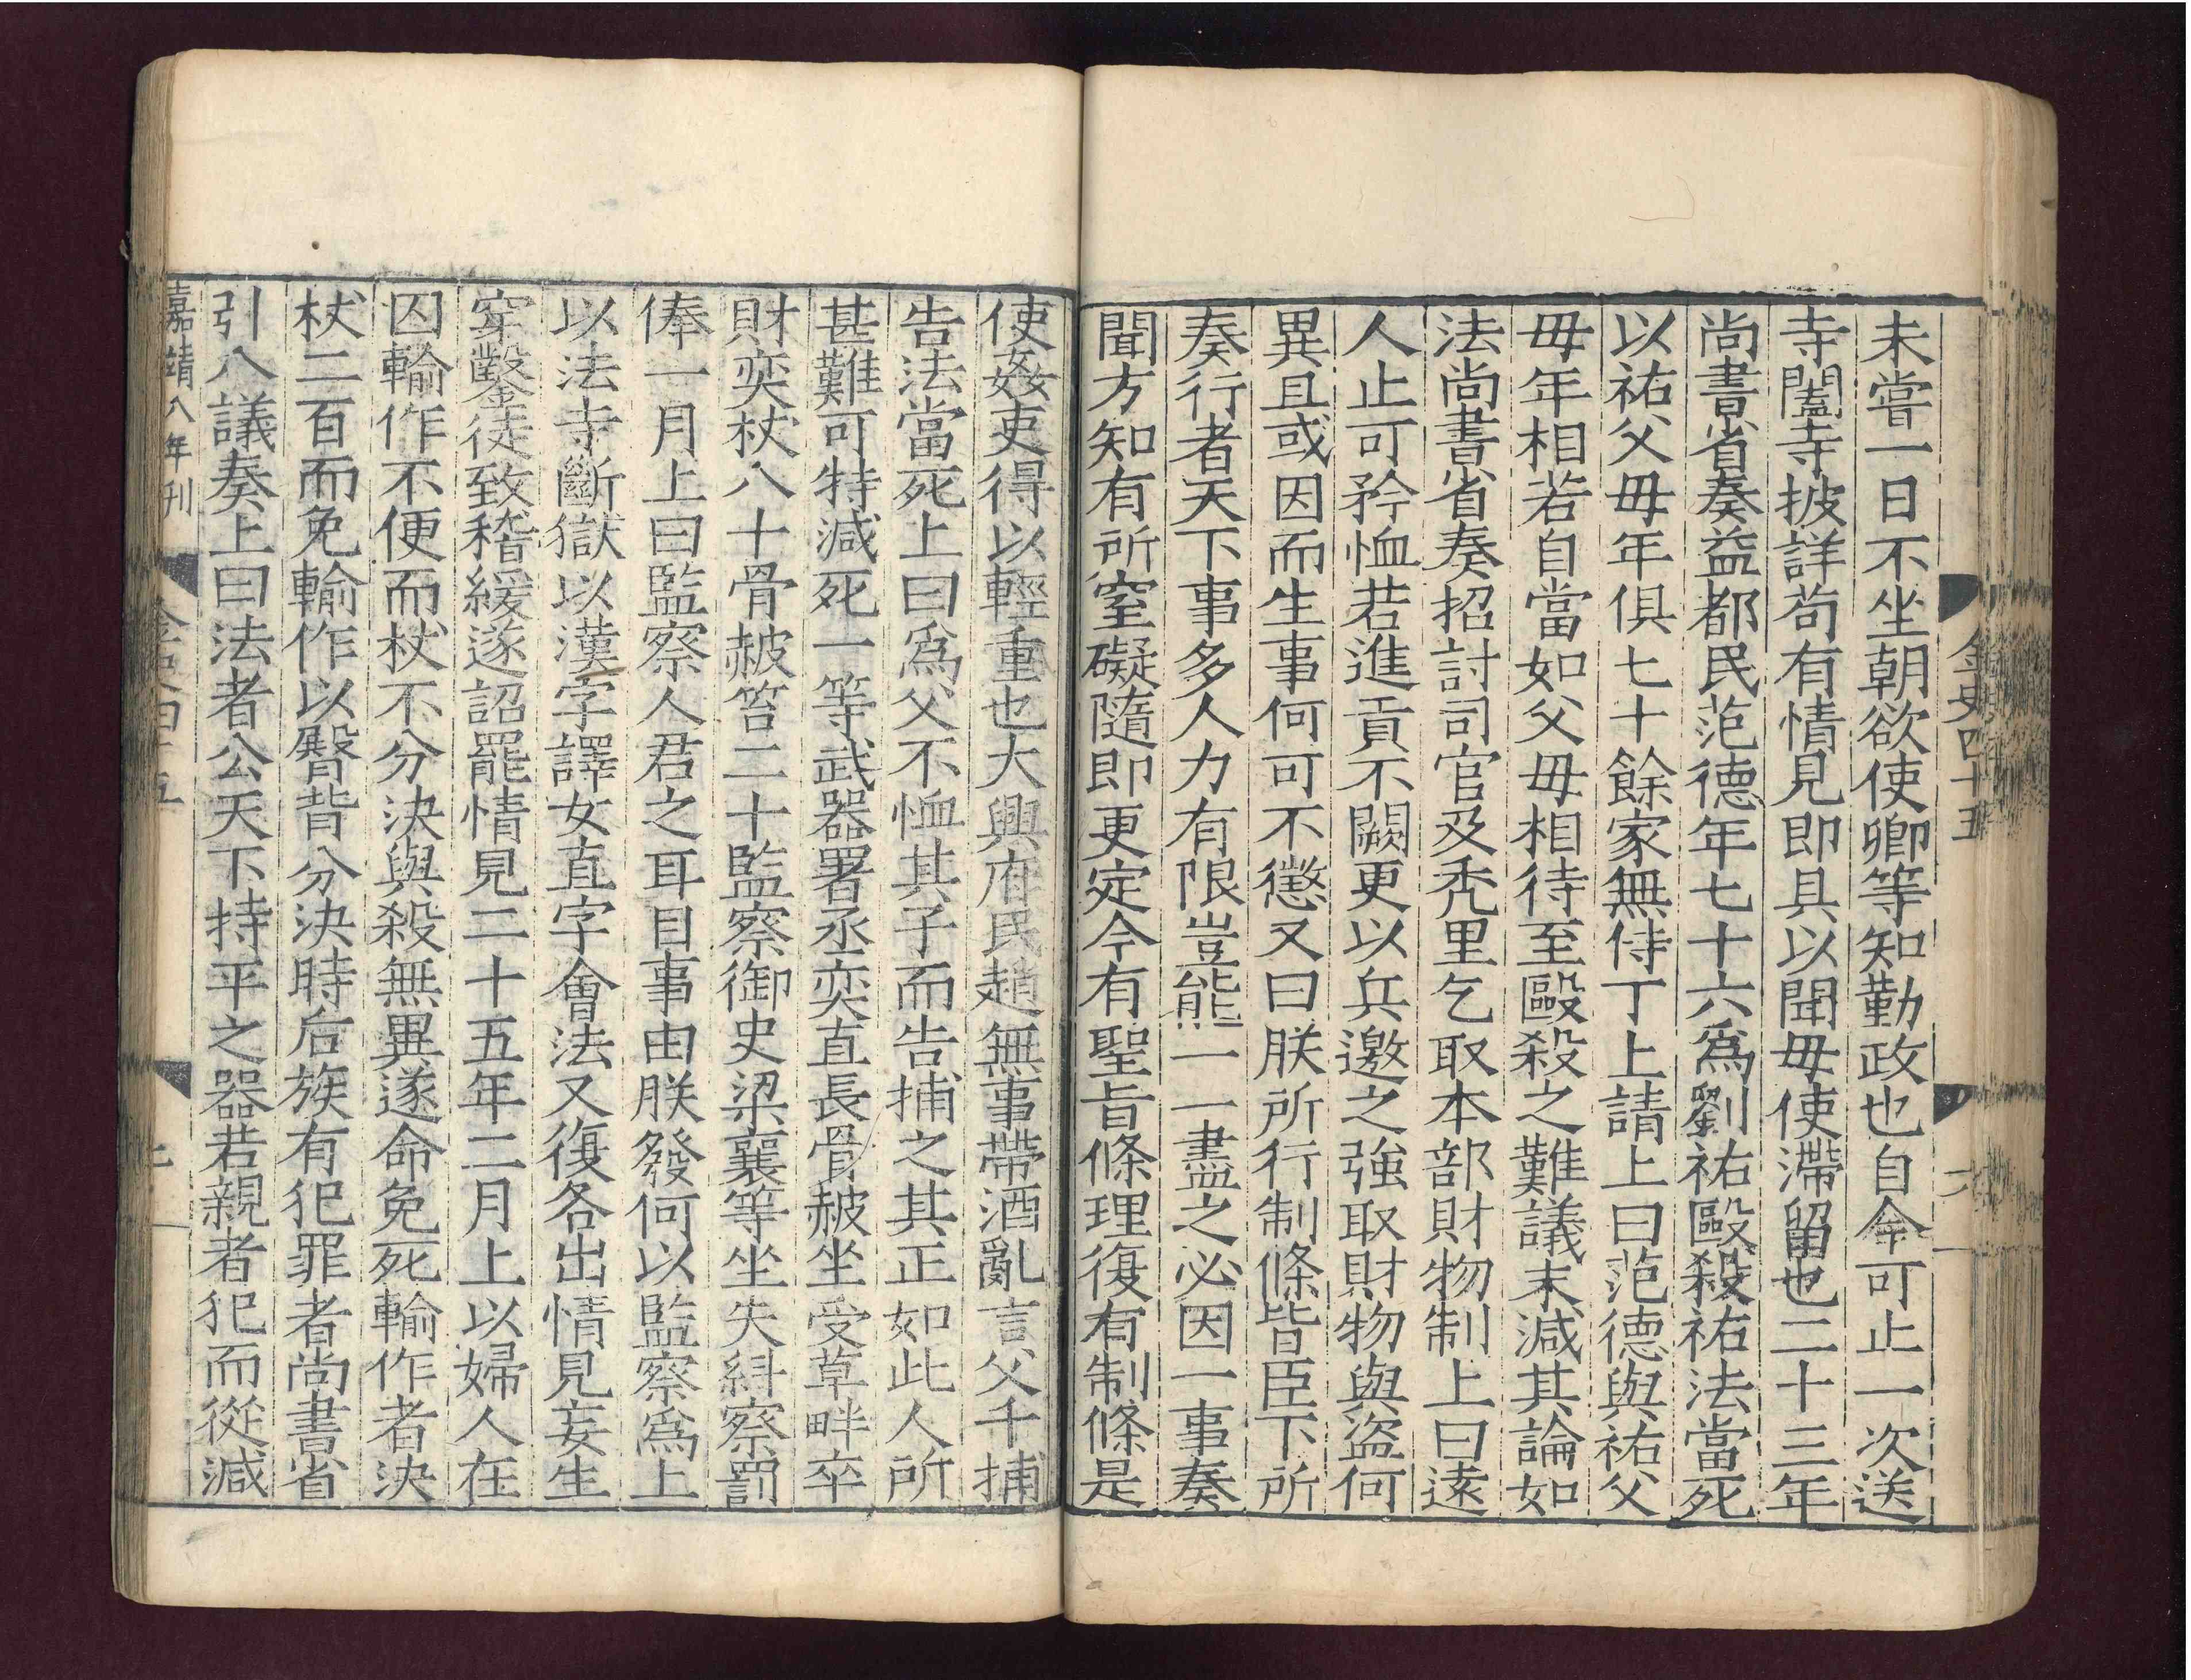 金史四十五
六
未嘗一日不坐朝欲使卿等知勤政也自今可止一次送
寺闔寺披詳苟有情見即具以聞毋使滯留也二十三年
尚書省奏益都民范德年七十六爲劉祐毆殺祐法當死
以祐父母年俱七十餘家無侍丁上請上曰范德與祐父
母年相若自當如父母相待至毆殺之難議末減其論如
法尚書省奏招討司官及禿里乞取本部財物制上曰遠
人止可矜恤若進貢不闕更以兵邀之強取財物與盜何
異且或因而生事何可不懲又曰朕所行制條皆臣下所
奏行者天下事多人力有限豈能一一盡之必因一事奏
聞方知有所窒礙隨即更定今有聖旨條理復有制條是
使姦吏得以輕重也大興府民趙無事帶酒亂言父千捕
告法當死上曰爲父不恤其子而告捕之其正如此人所
甚難可特減死一等武器署丞奕直長骨赧坐受草畔卒
財奕杖八十骨赧笞二十監察御史梁襄等坐失糾察罰
俸一月上曰監察人君之耳目事由朕發何以監察爲上
以法寺斷獄以漢字譯女直字會法又復各出情見妄生
穿鑿徒致稽緩遂詔罷情見二十五年二月上以婦人在
囚輸作不便而杖不分決與殺無異遂命免死輸作者決
杖二百而免輸作以臀背分決時后族有犯罪者尚書省
引八議奏上曰法者公天下持平之器若親者犯而從減
嘉靖八年刊